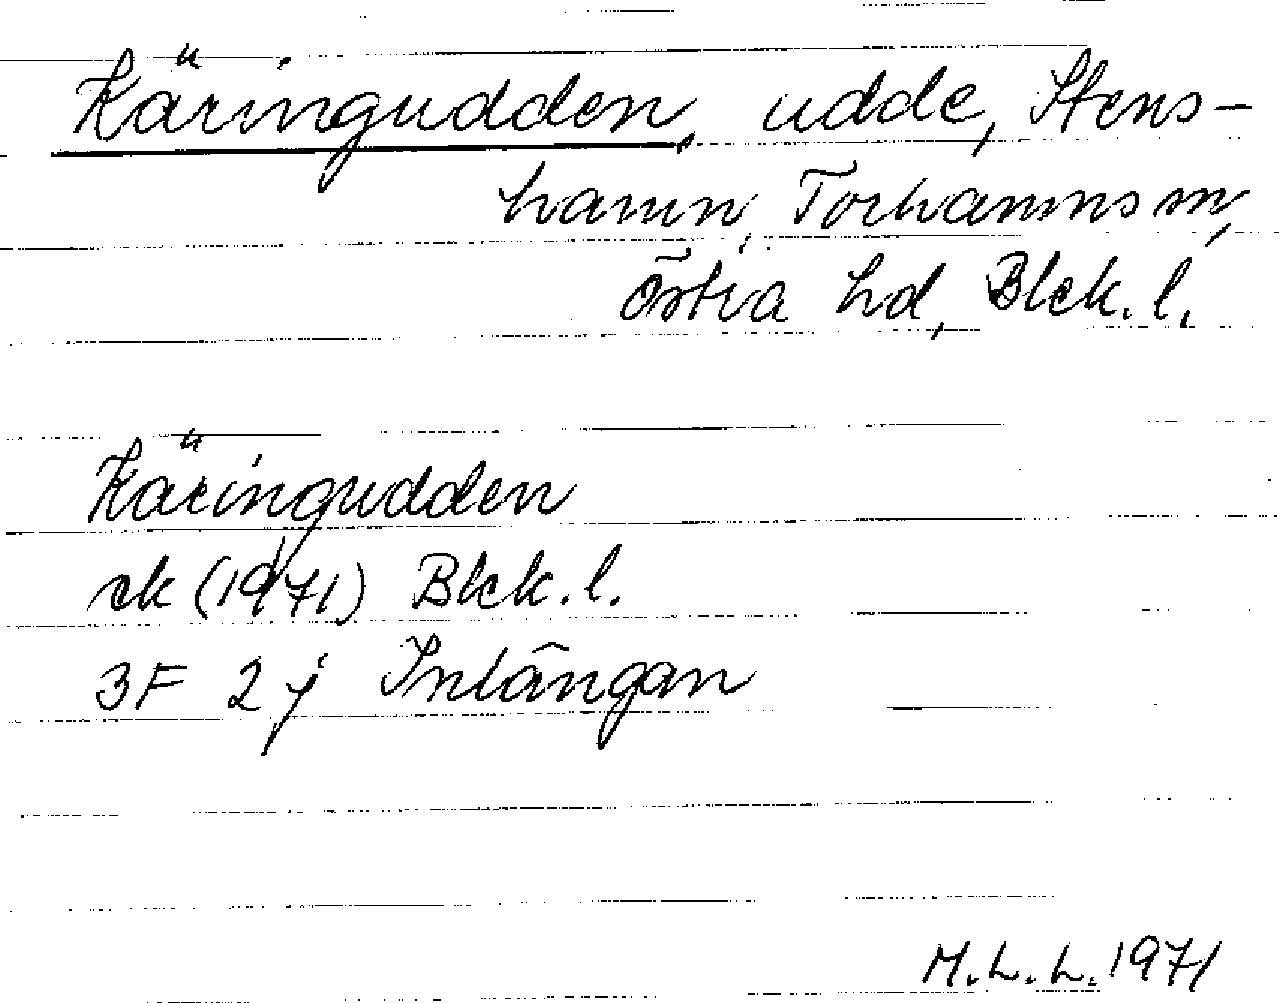 Käringudden, udde, Stens-
hamn, Torhamns sn,
Östra hd, Blek. l.
Käringudden
ek (1971) Blek. l.
3F 2j Inlängan
M.L.L. 1971